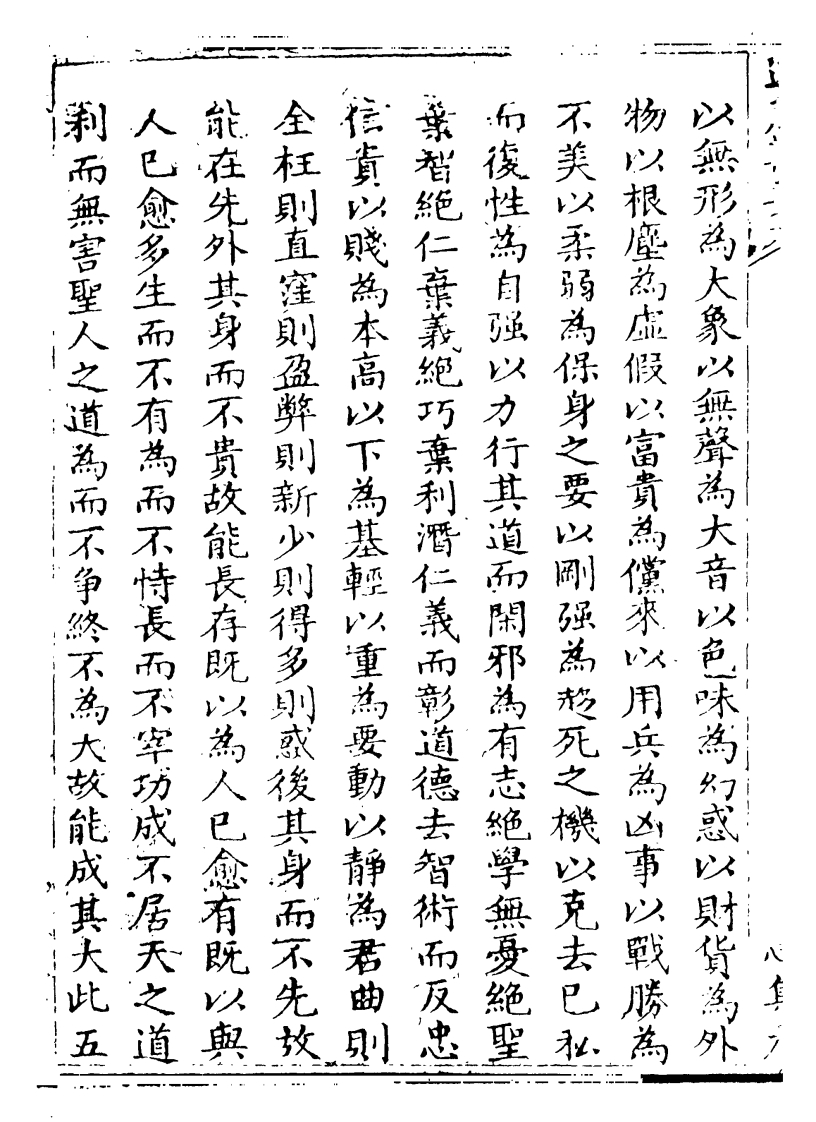 以無形為大象以無聲為大音以色味為幻惑以財貨為外
物以根塵為虛假以富貴為儻來以用兵為凶事以戰勝為
不美以柔弱為保身之要以剛强為趍死之機以克去已私
而復性為自强以力行其道而閑邪為有志絕學無憂絕聖
棄智絕仁棄義絕巧棄利潛仁義而彰道德去智術而反忠
信貴以賤為本高以下為基輕以重為要動以靜為君曲則
全枉則直窪則盈弊則新少則得多則惑後其身而不先故
能在先外其身而不貴故能長存既以為人已愈有既以與
人已愈多生而不有為而不恃長而不宰功成不居天之道
利而無害聖人之道為而不争終不為大故能成其大此五